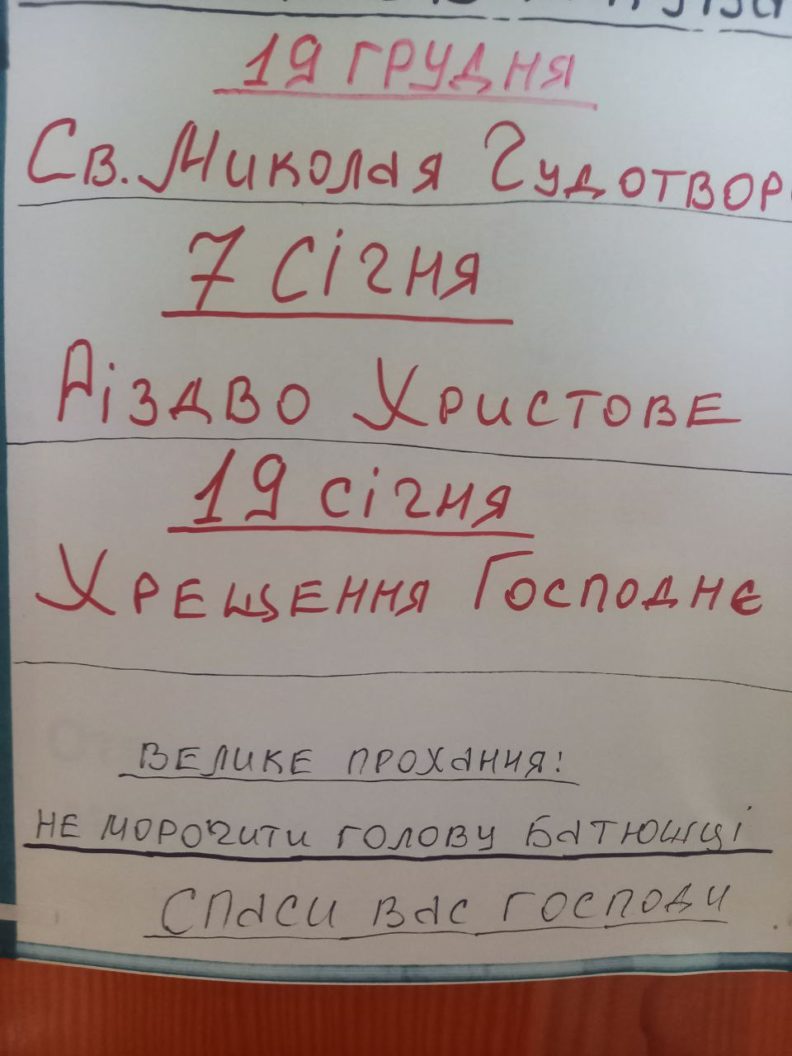 19 ГРУДНЯ
Св. Миколая Чудотвор
7 Січня
Різдво Христове
19 січня
Хрещення Господнє
ВЕЛИКЕ ПРОХАННЯ:
НЕ МОРОЧИТИ ГОЛОВУ БАТЮШЦІ
СПАСИ ВАС ГОСПОДИ